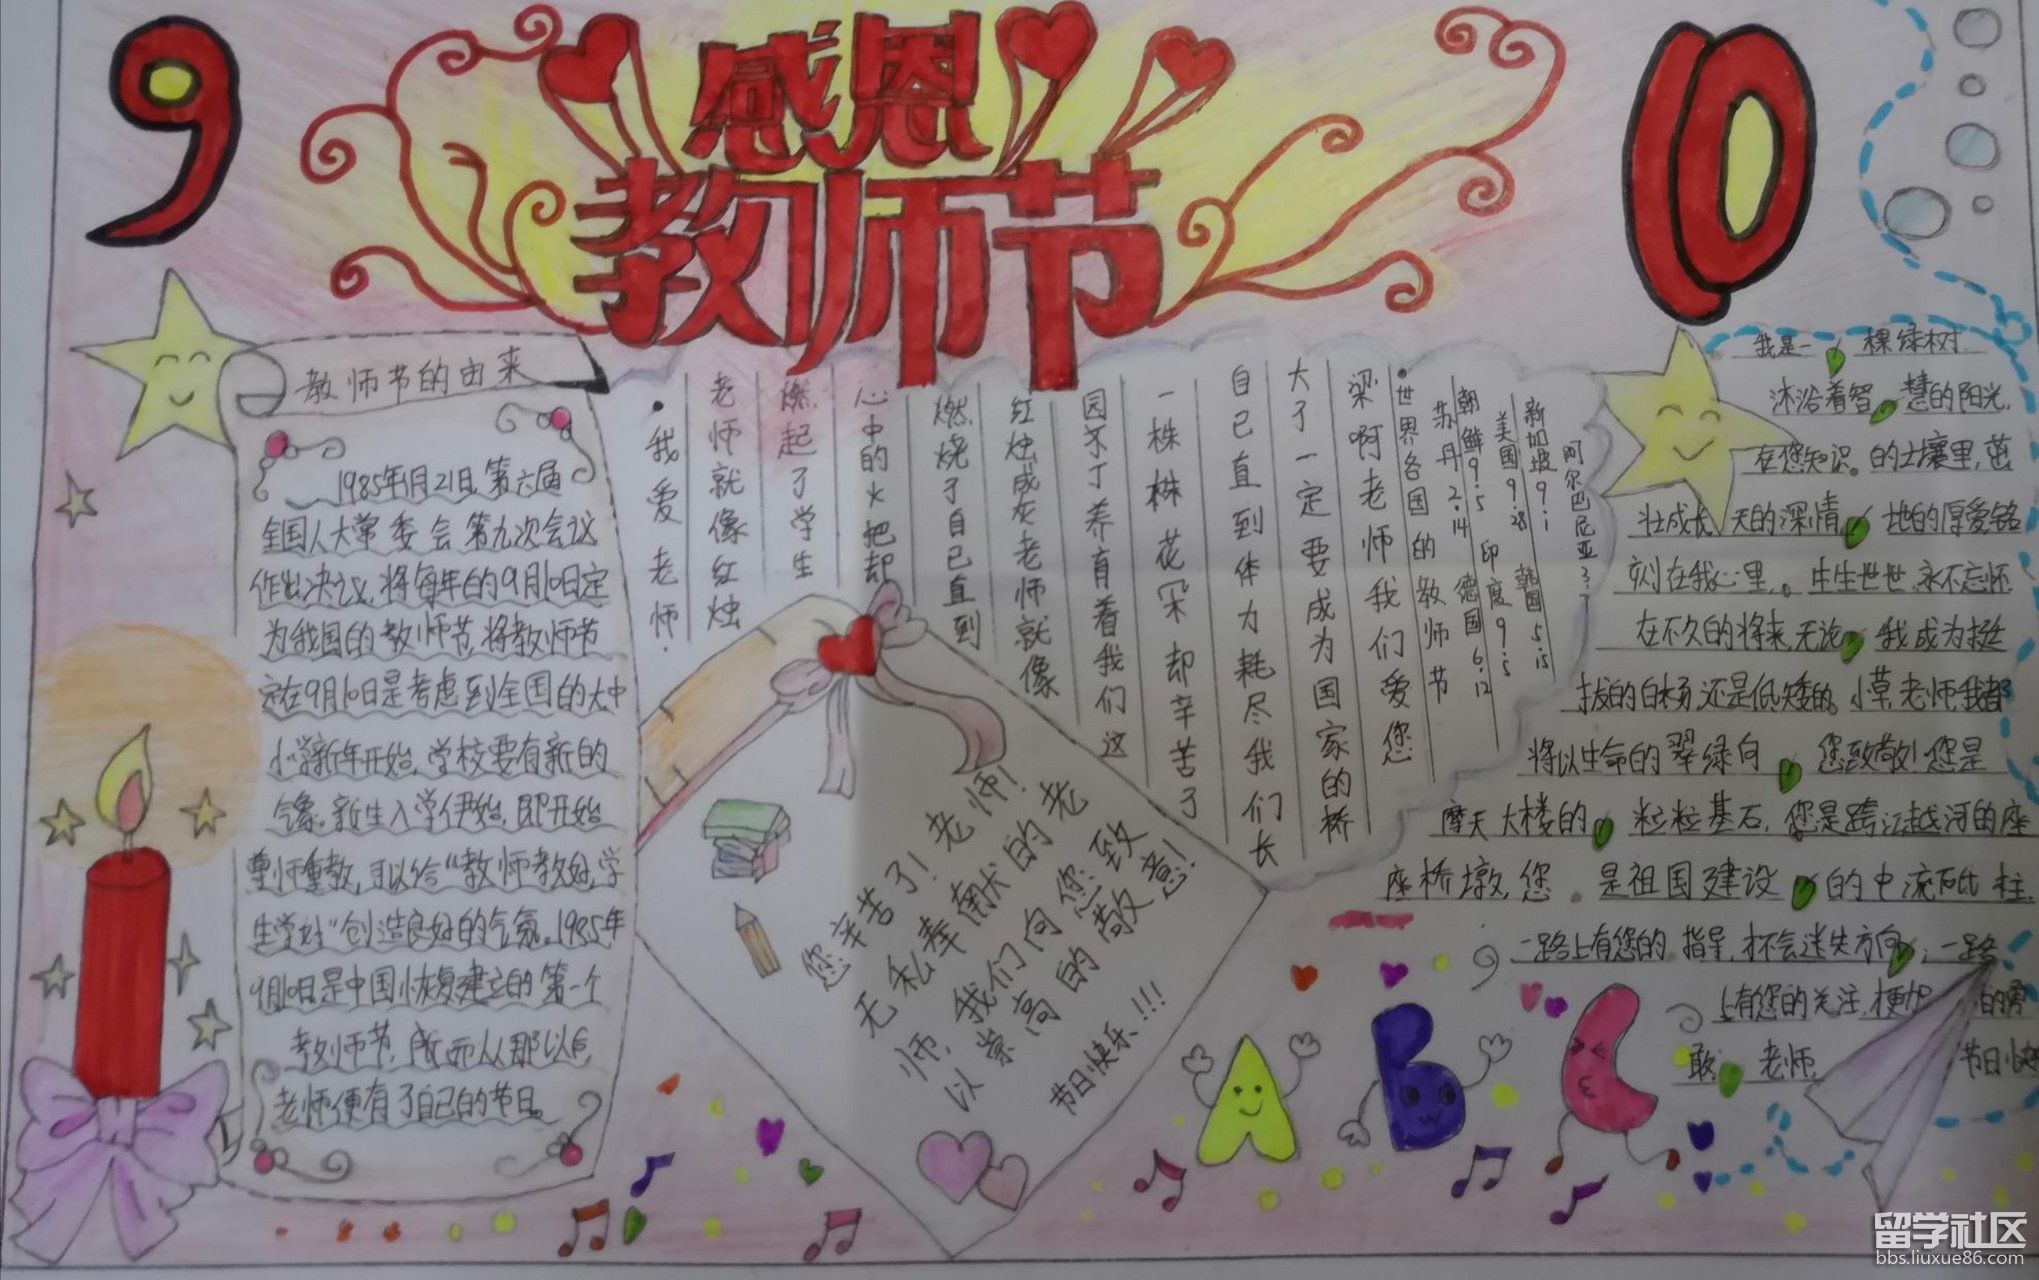 9
感恩
10
教师节
教师节的由来
1985年1月21日,第六届
全国人大常委会第九次会议
作出决议,将每年的9月10日定
为我国的教师节,将教师节
定在9月10日是考虑到全国的大中
小学新年开始,学校要有新的
气象。新生入学伊始,即开始
尊师重教,可以给“教师教好,学
生学好”创造良好的气氛。1985年
9月10日是中国恢复建立的第一个
教师节,
老师便有了自己的节日。
·我爱老师·
老师就像红烛
燃起了学生
心中的火把却
燃烧了自己直到
红烛成灰老师就像
园丁养育着我们这
一株株花朵却辛苦了
自己直到体力耗尽我们长
大了一定要成为国家的桥
梁啊老师我们爱您
·世界各国的教师节
苏丹2·14 德国6·12
朝鲜9·5 印度9·5
美国9·28 韩国5·15
新加坡9·1
阿尔巴尼亚3·7
您辛苦了!老师!
无私奉献的老
师,我们向您致
以崇高的敬意!
节日快乐!!!
我是一棵绿树
沐浴着智慧的阳光,
在您知识。的土壤里,茁
壮成长,天的深情,地的厚爱铭
刻在我心里,。生生世世,永不忘怀
在不久的将来,无论我成为挺
拔的白杨,还是低矮的。小草,老师,我都
将以生命的翠绿向您致敬!您是
摩天大楼的粒粒基石,您是跨江越河的座
座桥墩,您。是祖国建设的中流砥柱.
一路上有您的指导,才不会迷失方向;一路
上有您的关注,才更加的勇
敢;老师,节日快
A B C
留学社区
bbs.liuxue86.com